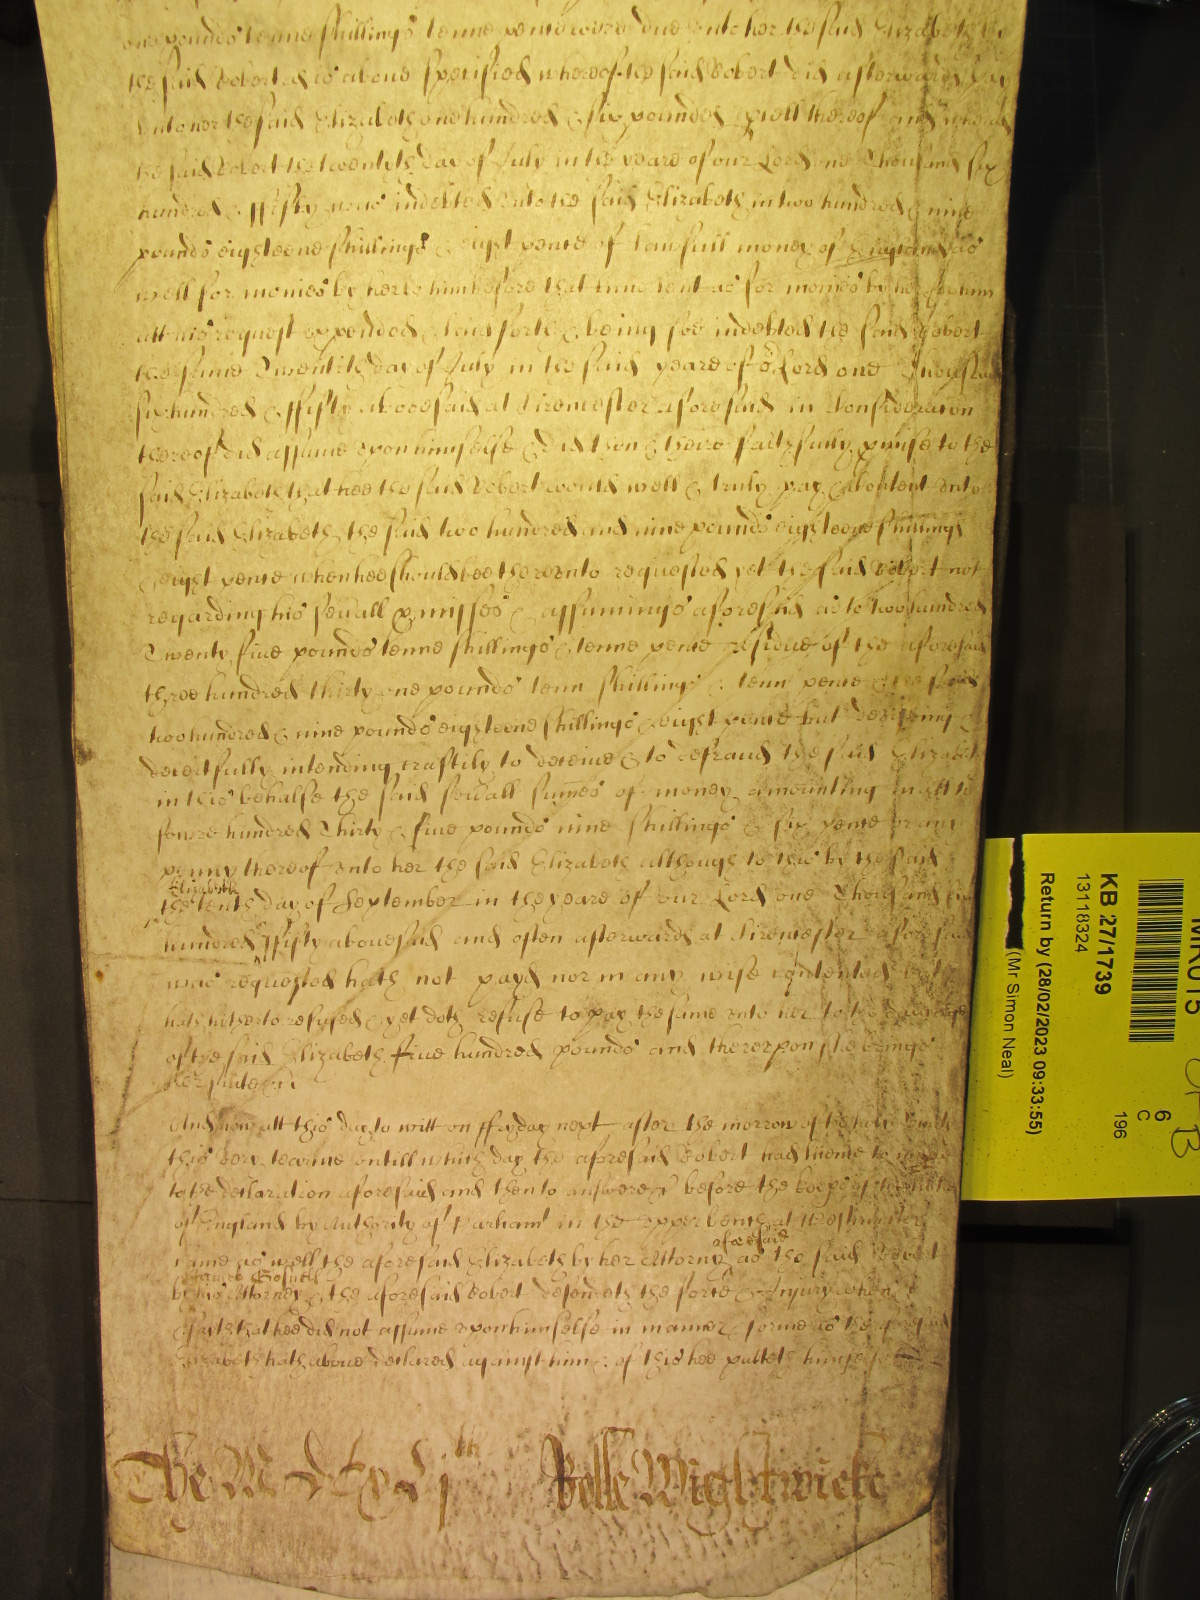 one pounds tenne shillings tenne pence were due unto her the said Elizabeth by
the said Robert as is aboue specified whereof the said Robert did afterwards pay
vnto her the said Elizabeth one hundred & six poundes p'cell thereof and whereas
the said Robert the twentith day of July in the yeare of our Lord one Thousand six
hundred & ffifty was indebted vnto the said Elizabeth in two hundred & nine
pounds eighteene shillings & eight pence of lawfull money of England as
well for monies by her to him before that time lent as for monies by her for him
att his request expended & laid forth & being soe indebted the said Robert
the same Twentith day of July in the said yeare of or Lord one Thousand
six hundred & ffifty abouesaid at Cirencester aforesaid in Consideracon
thereof did assume vpon himselfe & did then & there faithfully p'mise to the
said Elizabeth that hee the said Robert would well & truly pay & content vnto
the said Elizabeth the said two hundred and nine pounds eighteene shillings
& eight pence when hee should bee therevnto requested yet the said Robert not
regarding his seu'all p'misses & assumings aforesaid as to two hundred
Twenty fiue pounds tenne shillings & tenne pence residue of the aforesaid
three hundred thirty one pounds tenn shillings & tenn pence & the said
two hundred & nine pounds eighteene shillings & eight pence but designing &
deceitfully intending craftily to deceiue & to defraud the said Elizabeth
in this behalfe the said seu'all summes of money amounting in all to
foure hundred Thirty & fiue pounds nine shillings & six pence or any
penny thereof vnto her the said Elizabeth although to this by the said
Elizabeth
the tenth day of September in the yeare of our Lord one Thousand six
hundred & ffifty abouesaid and often afterwards at Cirencester aforesaid
was requested hath not payd nor in any wise contented but
hath hitherto refused & yet doth refuse to pay the same vnto her to the damage
of the said Elizabeth fiue hundred pounds and therevpon she brings
her suite &c
And now att this day to witt on ffryday next after the morrow of the holy
this very tearme vntill which day the aforesaid Robert had licence to
to the declaration aforesaid and then to answere &c before the keepers of the
of England by Authority of Parliamt in the vpper bench at Westminster
came as well the aforesaid Elizabeth by her Attorny aforesaid as the said Robert
by his Attorney & the aforesaid Robert defendeth the force & Injury when &c
& saith that hee did not assume vpon himselfe in manner & forme as the aforesaid
Elizabeth hath aboue declared against him & of this hee putteth himselfe
The M
Rolle Wightwicke
MR015
KB 27/1739
13118324
Return by (28/02/2023 09:33:55)
(Mr Simon Neal)
6
C
196
B